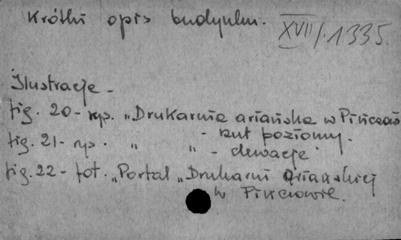 Krótki opis budynku.
XVII/1335.
Ilustracje -
fig. 20 - rys. "Drukarnia ariańska w Pińczowie
fig. 21 - rys. " " - rzut poziomy.
" - elewacje"
fig. 22 - fot. "Portal "Drukarni ariańskiej
w Pińczowie.